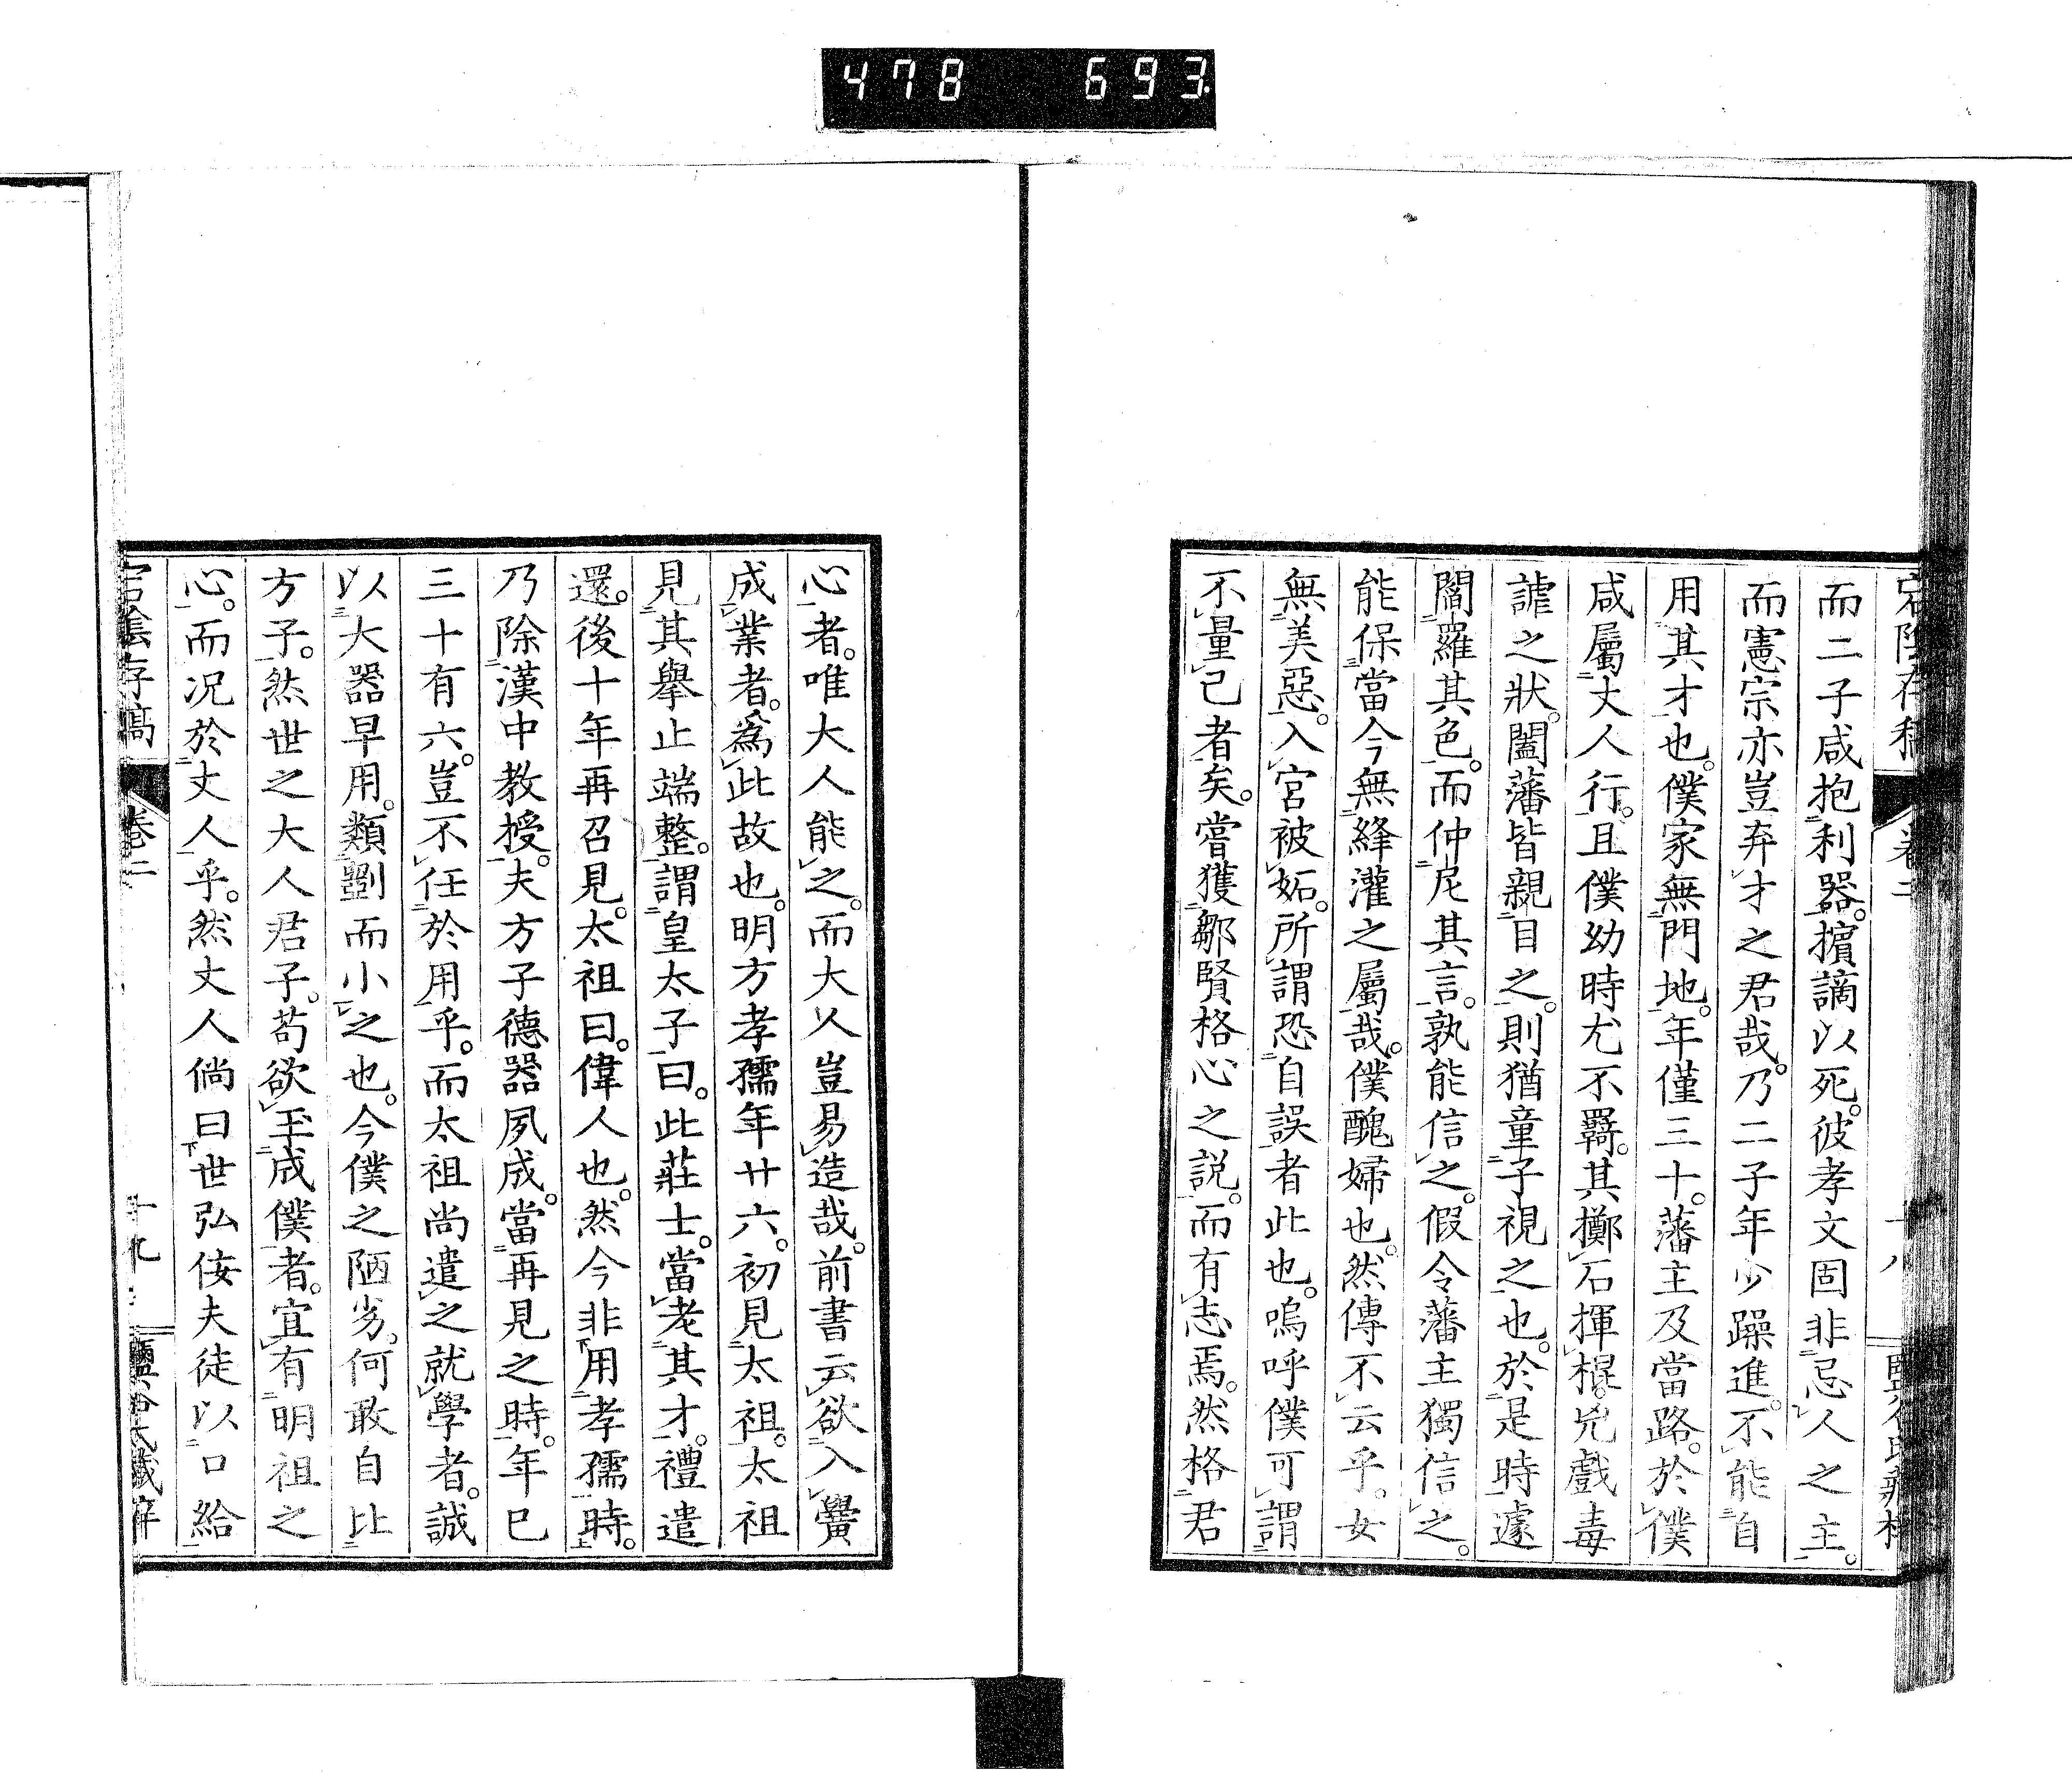 478 693
而二子咸抱利器。擯謫以死。彼孝文固非忌人之主。
而憲宗亦豈弃才之君哉。乃二子年少躁進。不能自
用其才也。僕家無門地。年僅三十。藩主及當路。於僕
咸屬丈人行。且僕幼時尤不羈。其擲石揮棍。兇戲毒
謔之狀。闔藩皆親目之。則猶童子視之也。於是時遽
閻羅其色。而仲尼其言。孰能信之。假令藩主獨信之。
能保當今無絳灌之屬哉。僕醜婦也。然傳不云乎。女
無美惡。入宮被妬。所謂恐自誤者此也。嗚呼僕可謂
不量己者矣。嘗獲鄒賢格心之説。而有志焉。然格君
心者。唯大人能之。而大人豈易造哉。前書云欲入黌
成業者。爲此故也。明方孝孺年廿六。初見太祖。太祖
見其擧止端整。謂皇太子曰。此莊士。當老其才。禮遣
還。後十年再召見。太祖曰。偉人也。然今非用孝孺時。
乃除漢中教授。夫方子德器夙成。當再見之時。年巳
三十有六。豈不任於用乎。而太祖尚遣之就學者。誠
以大器早用。類劉而小之也。今僕之陋劣。何敢自比
方子。然世之大人君子。苟欲玉成僕者。宜有明祖之
心。而况於丈人乎。然丈人倘曰世弘佞夫徒以口給
卷二